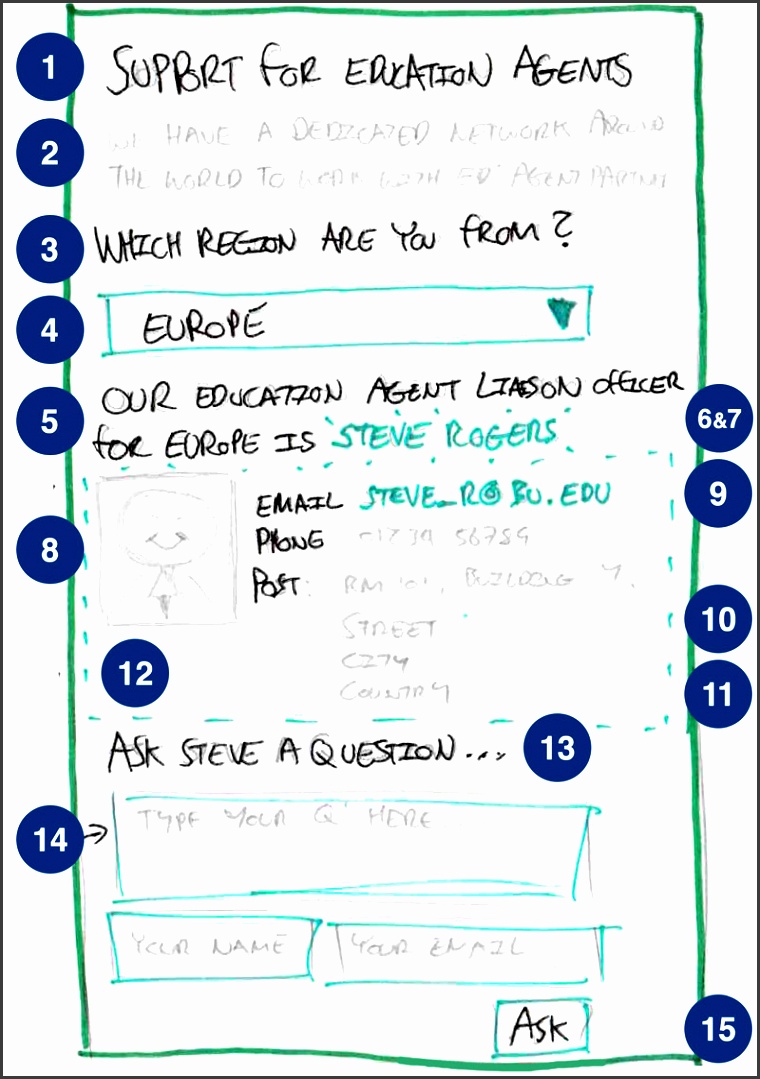 1
SUPPORT FOR EDUCATION AGENTS
2
WE HAVE A DEDICATED NETWORK AROUND
THE WORLD TO WORK WITH ED' AGENT
3
WHICH REGION ARE YOU FROM?
4
EUROPE
5
OUR EDUCATION AGENT LIASON OFFICER
6&7
FOR EUROPE IS STEVE ROGERS
9
EMAIL STEVE_R@BU.EDU
8
PHONE
POST: RM '01', BUILDING 7.
10
STREET
12
CITY
11
COUNTRY
ASK STEVE A QUESTION...
13
14
TYPE YOUR Q' HERE
YOUR NAME
YOUR EMAIL
15
ASK